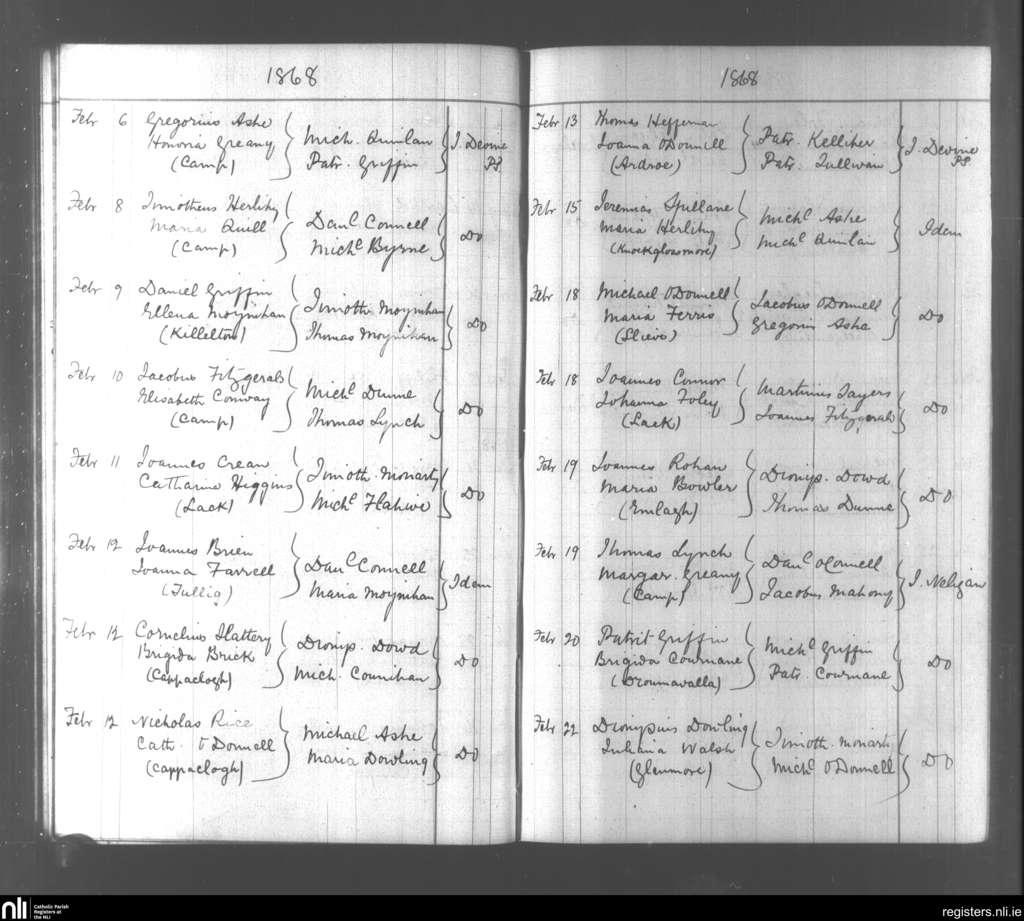 1868
Febr 6 Gregorius Ashe
Honoria Greany
(Camp)
Mich. Quinlan
Patr. Griffin
J. Devine
PP
Febr 8 Timotheus Herlihy
Maria Quill
(Camp)
Danl Connell
Michl Byrne
Do
Febr 9 Daniel Griffin
Ellena Moynihan
(Killelton)
Timoth. Moynihan
Thomas Moynihan
Do
Febr 10 Jacobus Fitzgerald
Elisabeth Conway
(Camp)
Michl Dunne
Thomas Lynch
Do
Febr 11 Joannes Crean
Catharine Higgins
(Lack)
Timoth. Moriarty
Michl Flahive
Do
Febr 12 Joannes Brien
Joanna Farrell
(Tullig)
Danl Connell
Maria Moynihan
Idem
Febr 12 Cornelius Slattery
Brigida Brick
(Cappaclogh)
Dionys. Dowd
Mich. Counihan
Do
Febr 12 Nicholas Rice
Cath. O Donnell
(Cappaclogh)
Michael Ashe
Maria Dowling
Do
1868
Febr 13 Thomas Heffernan
Joanna ODonnell
(Ardroe)
Patr. Kelliher
Patr. Sullivan
J. Devine
PP
Febr 15 Jeremias Spillane
Maria Herlihy
(Knockglossmore)
Michl Ashe
Michl Quinlan
Idem
Febr 18 Michael ODonnell
Maria Ferris
(Slieve)
Jacobus ODonnell
Gregoriu Ashe
Do
Febr 18 Joannes Connor
Johanna Foley
(Lack)
Martinus Sayers
Joannes Fitzgerald
Do
Febr 19 Joannes Rohan
Maria Bowler
(Emlagh)
Dionys. Dowd
Thomas Dunne
Do
Febr 19 Thomas Lynch
Margar. Greany
(Camp)
Danl OConnell
Jacobus Mahony
J. Neligan
Febr 20 Patrit Griffin
Brigida Cournane
(Droumavalla)
Michl Griffin
Patr. Cournane
Do
Febr 22 Dionysius Dowling
Juliana Walsh
(Glenmore)
Timoth. Moriarty
Michl ODonnell
Do
nli Catholic Parish
Registers at
the NLI
registers.nli.ie